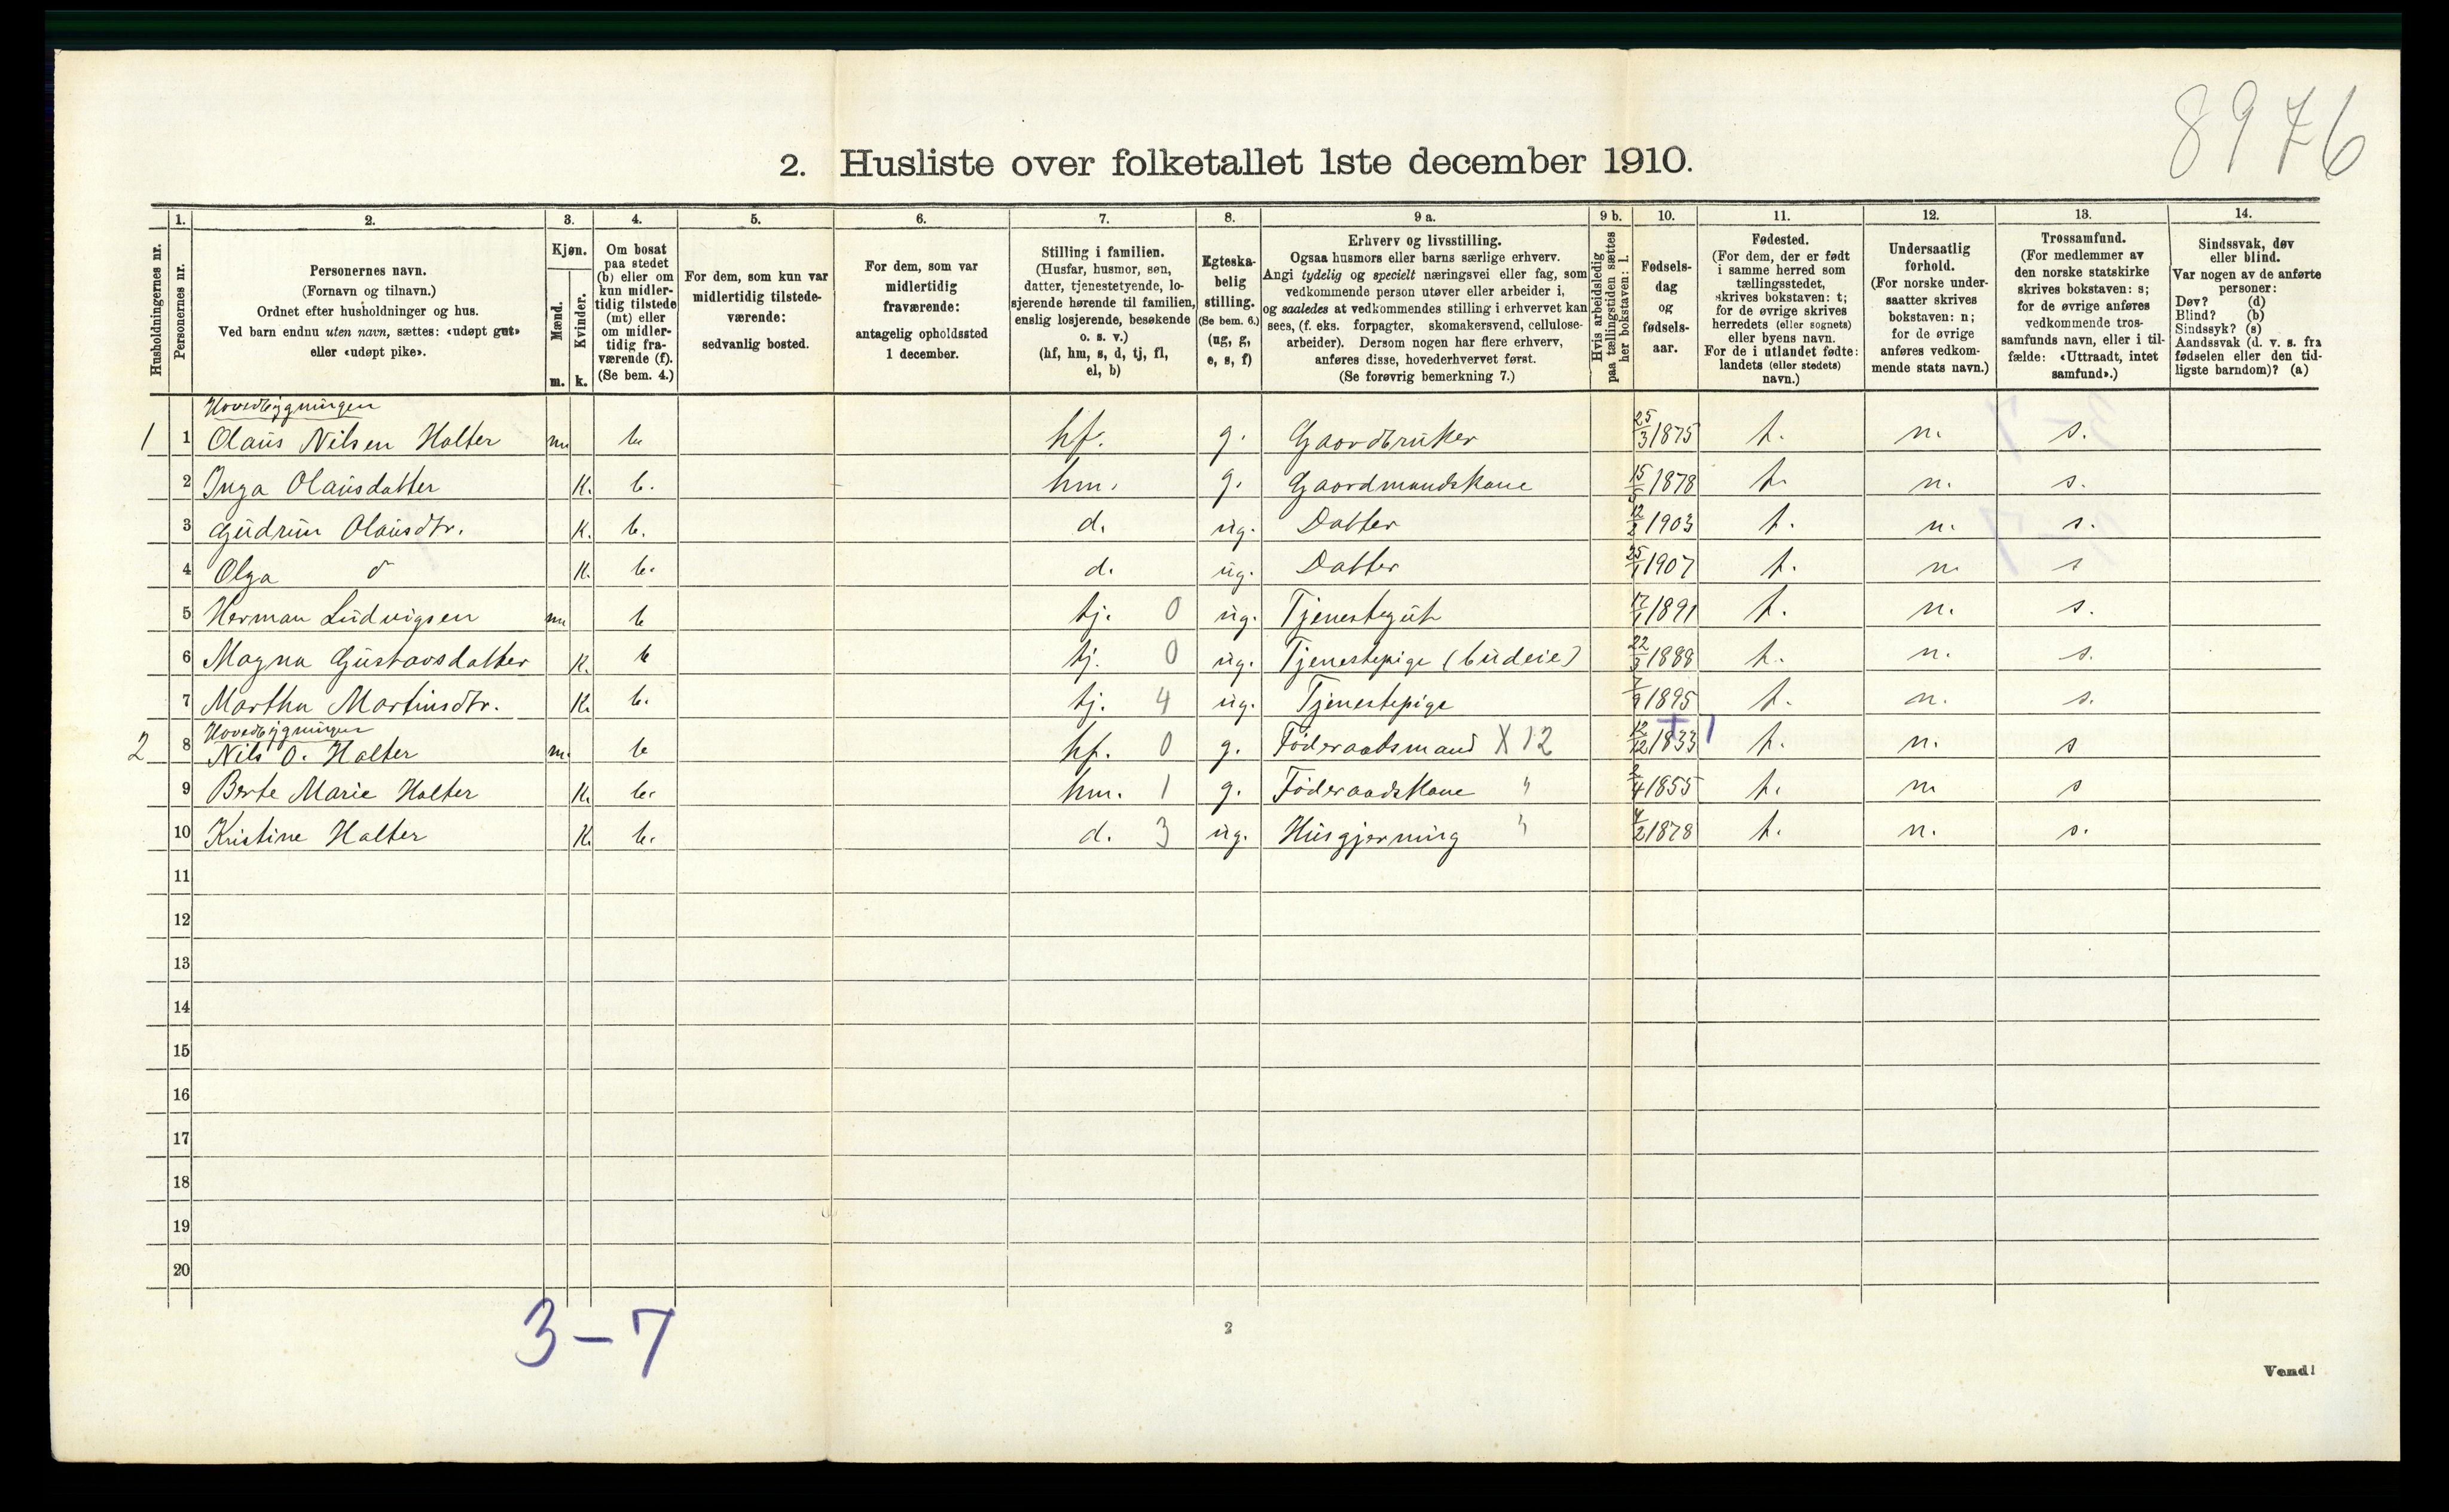 8976
2. Husliste over folketallet 1ste december 1910.
Husholdningernes nr.
1.
Personernes nr.
2.
Personernes navn.
(Fornavn og tilnavn.)
Ordnet efter husholdninger og hus.
Ved barn endnu uten navn, sættes: «udøpt gut»
eller «udøpt pike».
3.
Kjøn.
Mænd.
Kvinder.
m. k.
4.
Om bosat
paa stedet
(b) eller om
kun midler-
tidig tilstede
(mt) eller
om midler-
tidig fra-
værende (f).
(Se bem. 4.)
5.
For dem, som kun var
midlertidig tilstede-
værende:
sedvanlig bosted.
6.
For dem, som var
midlertidig
fraværende:
antagelig opholdssted
1 december.
7.
Stilling i familien.
(Husfar, husmor, søn,
datter, tjenestetyende, lo-
sjerende hørende til familien,
enslig losjerende, besøkende
o. s. v.)
(hf, hm, s, d, tj, fl,
el, b)
8.
Egteska-
belig
stilling.
(Se bem. 6.)
(ug, g,
e, s, f)
9 a.
Erhverv og livsstilling.
Ogsaa husmors eller barns særlige erhverv.
Angi tydelig og specielt næringsvei eller fag, som
vedkommende person utøver eller arbeider i,
og saaledes at vedkommendes stilling i erhvervet kan
sees, (f. eks. forpagter, skomakersvend, cellulose-
arbeider). Dersom nogen har flere erhverv,
anføres disse, hovederhvervet først.
(Se forøvrig bemerkning 7.)
9 b.
Hvis arbeidsledig
paa tællingstiden sættes
her bokstaven: l.
10.
Fødsels-
dag
og
fødsels-
aar.
11.
Fødested.
(For dem, der er født
i samme herred som
tællingsstedet,
skrives bokstaven: t;
for de øvrige skrives
herredets (eller sognets)
eller byens navn.
For de i utlandet fødte:
landets (eller stedets)
navn.)
12.
Undersaatlig
forhold.
(For norske under-
saatter skrives
bokstaven: n;
for de øvrige
anføres vedkom-
mende stats navn.)
13.
Trossamfund.
(For medlemmer av
den norske statskirke
skrives bokstaven: s;
for de øvrige anføres
vedkommende tros-
samfunds navn, eller i til-
fælde: «Uttraadt, intet
samfund».)
14.
Sindssvak, døv
eller blind.
Var nogen av de anførte
personer:
Døv? (d)
Blind? (b)
Sindssyk? (s)
Aandssvak (d. v. s. fra
fødselen eller den tid-
ligste barndom)? (a)
Hovedbygningen
1 1 Olaus Nilsen Holter m b hf. g. Gaardbruker 25/3 1875 t. n. s.
2 Inga Olausdatter k. b. hm. g. Gaardmandskone 15/5 1878 t. n. s.
3 Gudrun Olausdtr. k. b. d. ug. Datter 12/2 1903 t. n. s.
4 Olga d k. b. d. ug. Datter 25/1 1907 t. n. s
5 Herman Ludvigsen m b tj. 0 ug. Tjenestegut 17/1 1891 t. n. s.
6 Magna Gustavsdatter k. b tj. 0 ug. Tjenestepige (budeie) 22/3 1888 t. n. s.
7 Martha Martinsdtr. k. b. tj. 4 ug. Tjenestepige 7/9 1895 t. n. s.
Hovedbygningen
2 8 Nils O. Holter m. b hf. 0 g. Föderaadsmand X 12 12/12 1833 t. n. s
9 Berte Marie Holter k. b. hm. 1 g. Föderaadskone " 2/4 1855 t. n s
10 Kristine Holter k. b. d. 3 ug. Husgjerning " 4/2 1878 t. n. s.
11
12
13
14
15
16
17
18
19
20
3 – 7
2
Vend!